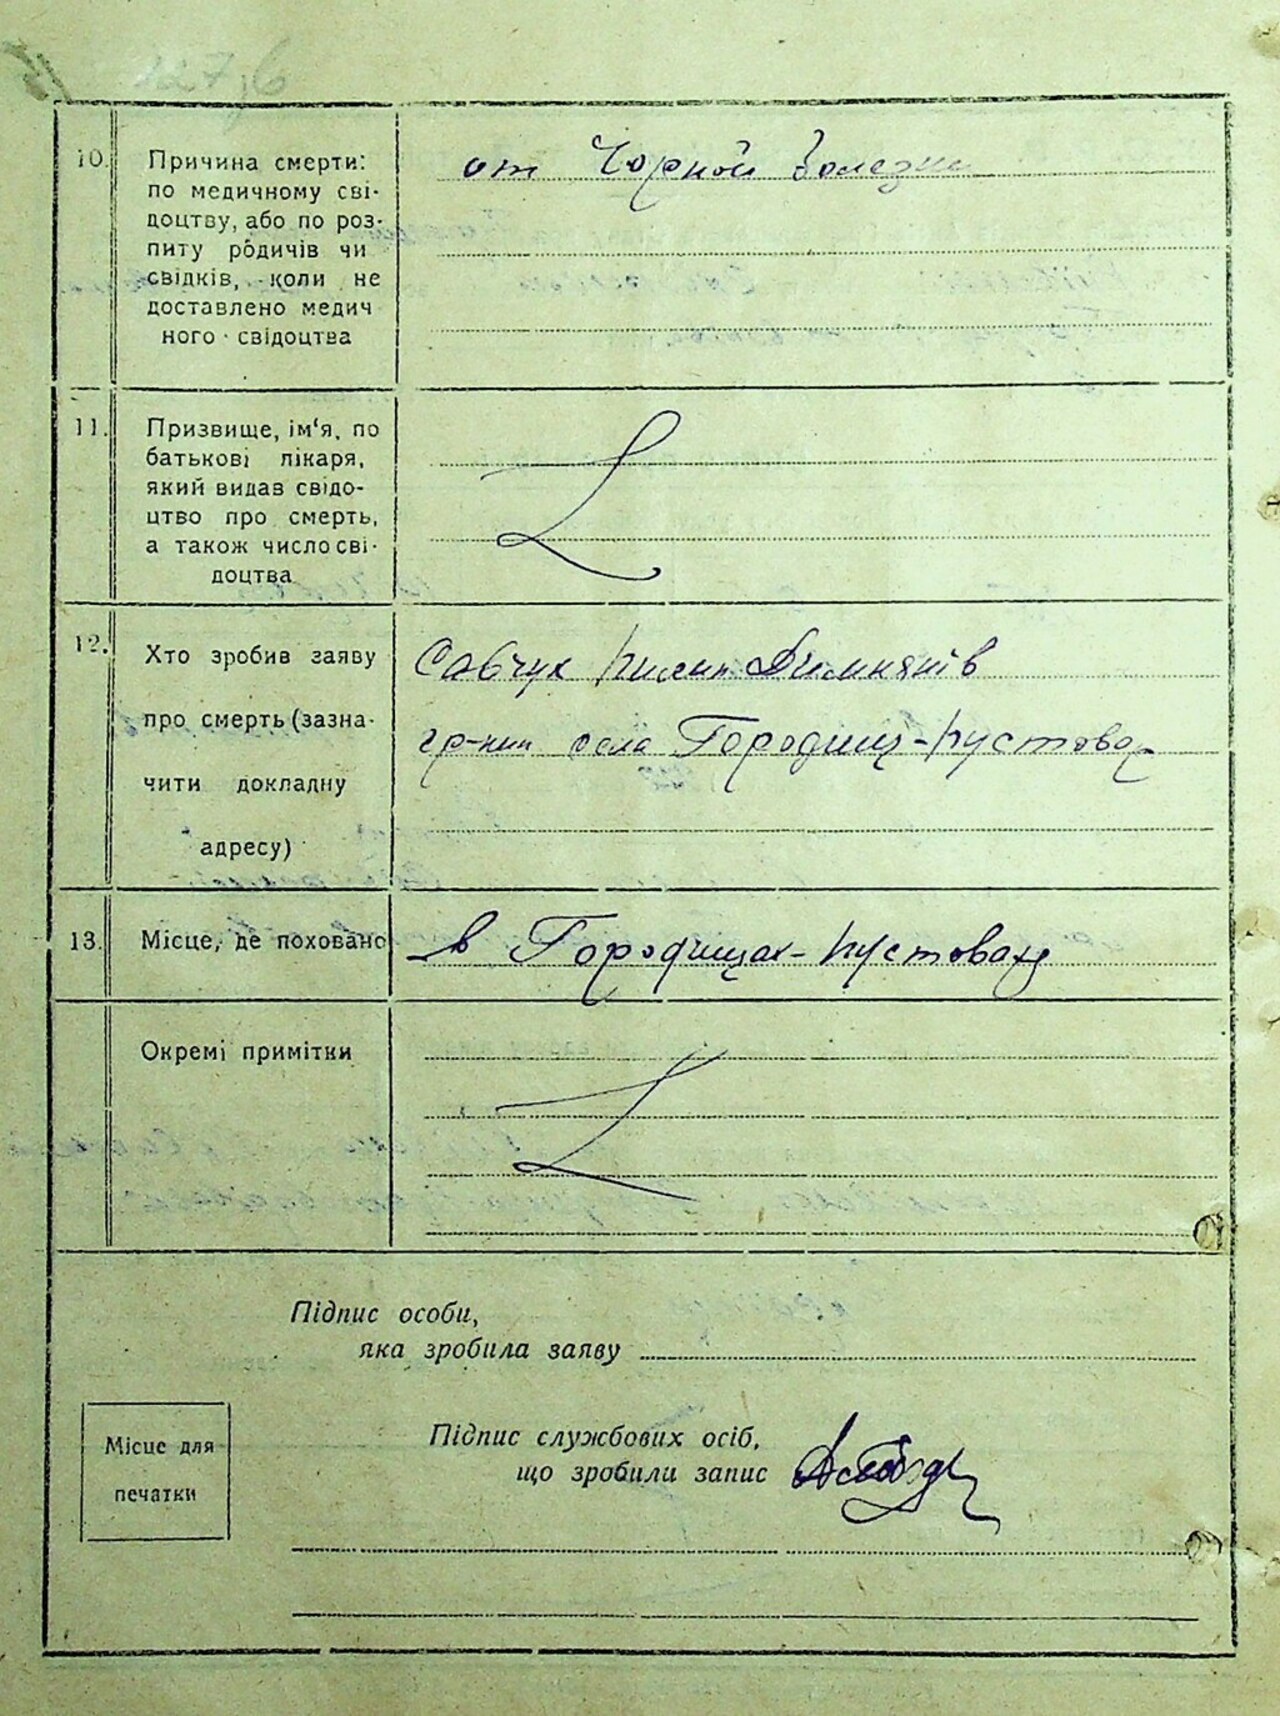 10. Причина смерти: от Чорной болезни
по медичному сві-
доцтву, або по роз-
питу родичів чи
свідків, коли не
доставлено медич
ного свідоцтва
11. Призвище, ім'я, по
батькові лікаря,
який видав свідо-
цтво про смерть,
а також число сві-
доцтва
12. Хто зробив заяву Савчук
про смерть (зазна- гр-нин села Городищ-Пустовар
чити докладну
адресу)
13. Місце, де поховано в Городищах-Пустовах
Окремі примітки
Підпис особи,
яка зробила заяву
Місце для
печатки
Підпис службових осіб,
що зробили запис